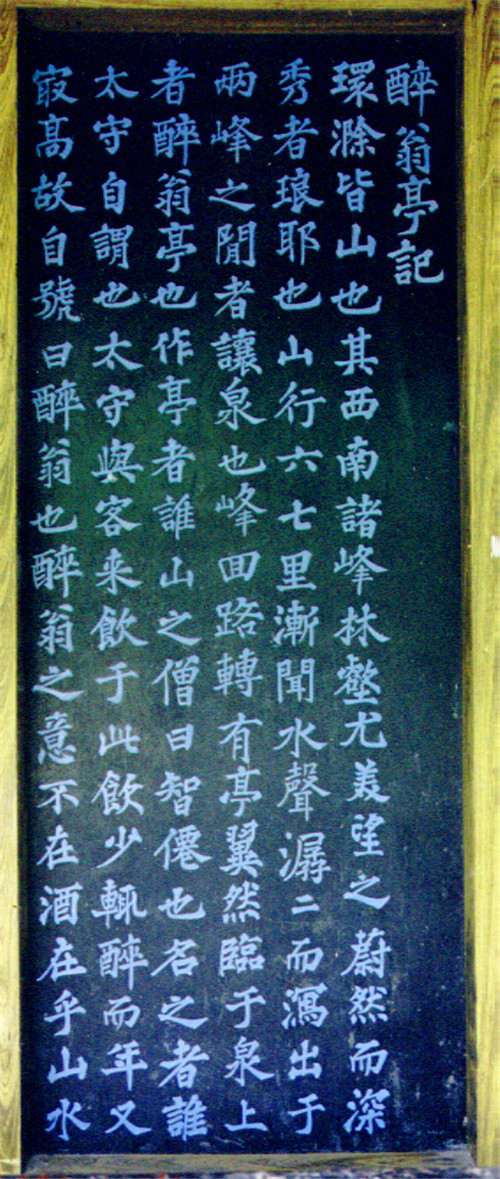 醉翁亭記
環滁皆山也其西南諸峰林壑尤美望之蔚然而深
秀者琅耶也山行六七里漸聞水聲潺二而瀉出于
兩峰之閒者讓泉也峰回路轉有亭翼然臨于泉上
者醉翁亭也作亭者誰山之僧曰智僊也名之者誰
太守自謂也太守與客来飲于此飲少輒醉而年又
㝡髙故自號曰醉翁也醉翁之意不在酒在乎山水